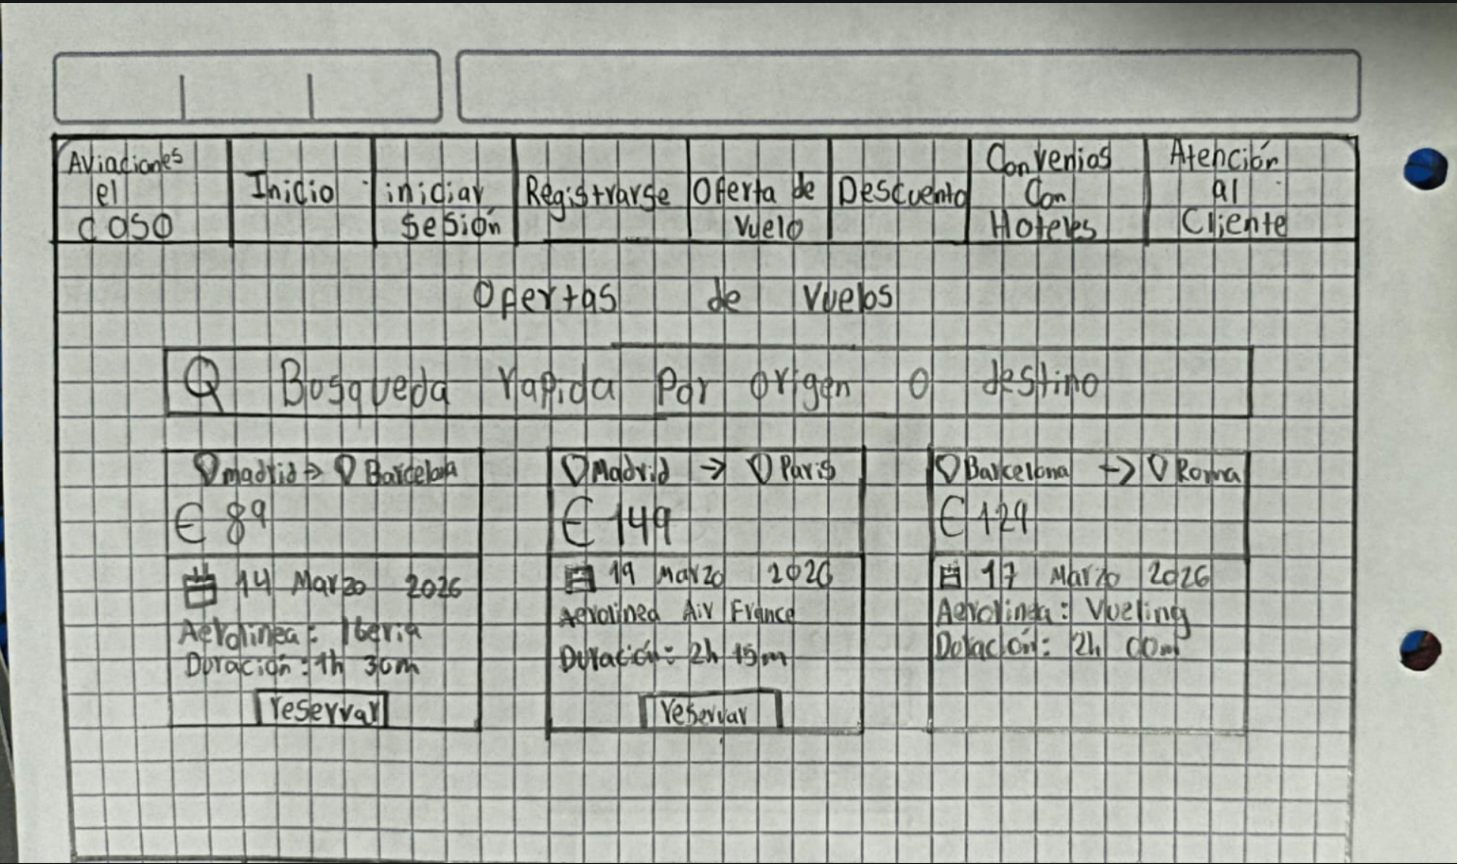 Aviaciones
el
coso
Inicio
iniciar
sesión
Registrarse
Oferta de
Vuelo
Descuento
Convenios
Con
Hoteles
Atención
al
Cliente
Ofertas de Vuelos
Busqueda rapida Por origen o destino
madrid → Barcelona
€ 89
14 Marzo 2026
Aerolinea: Iberia
Duración: 1h 30m
reservar
Madrid → Paris
€ 149
19 Marzo 2026
Aerolinea Air France
Duración: 2h 15m
reservar
Barcelona → Roma
€ 129
17 Marzo 2026
Aerolinea: Vueling
Duración: 2h 00m